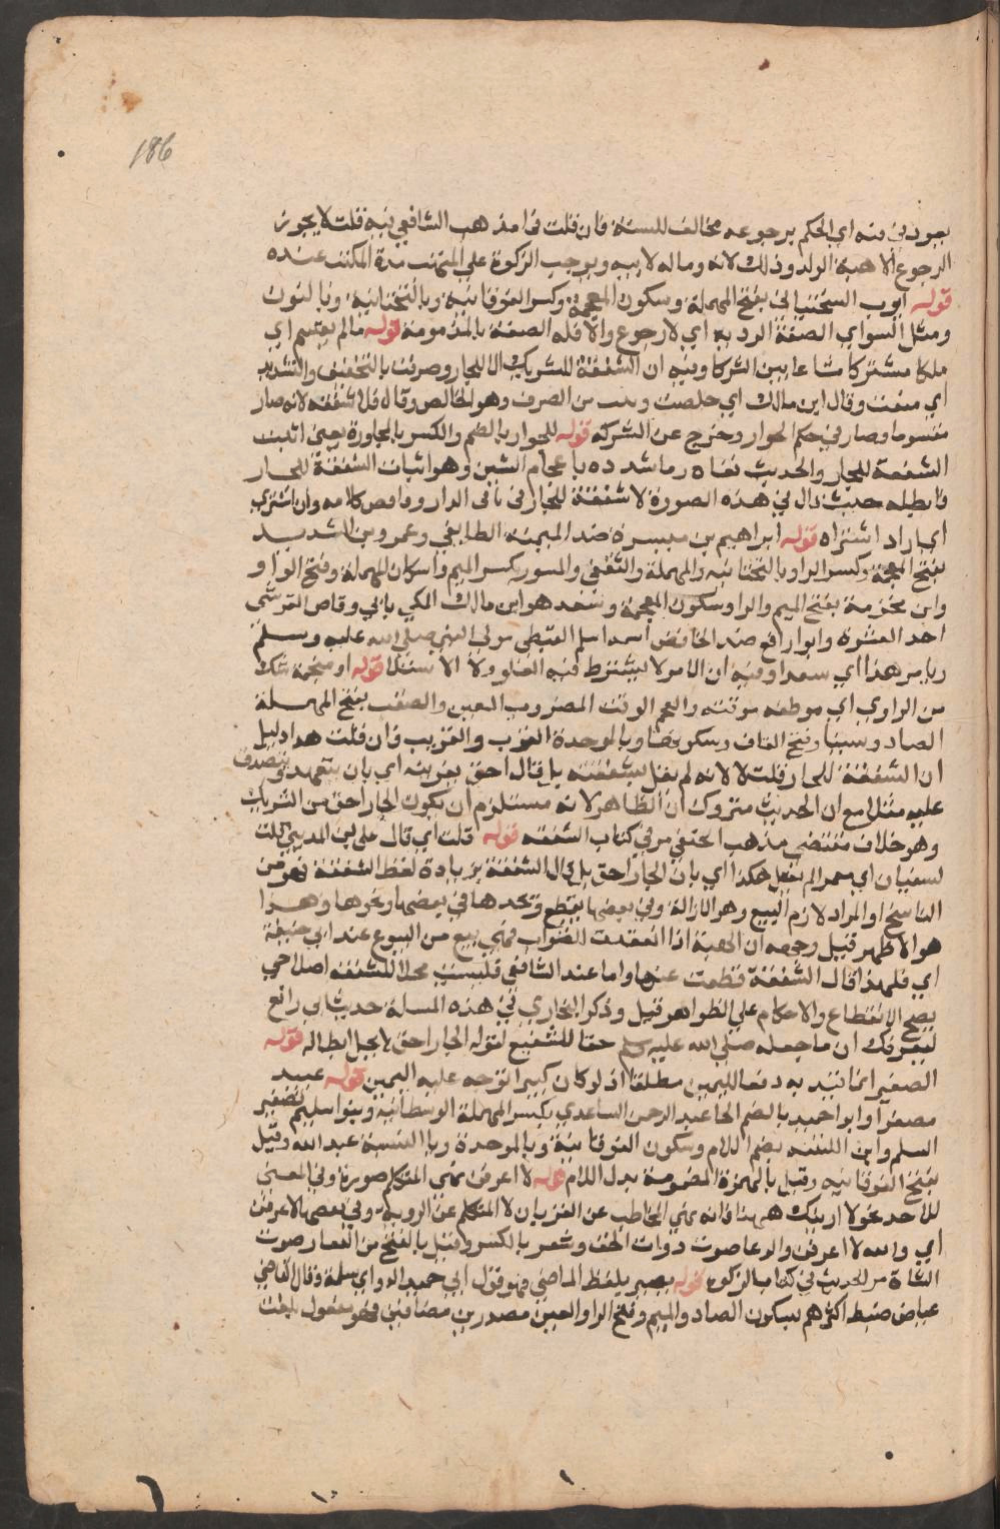 186
يعودني منه اي الحكم برجوعه مخالف للسنة فان قلت فما مذهب الشافعي فيه قلت لا يجوز
الرجوع الا هبة الولد وذلك لانه وماله لابيه ويوجب الزكوة على المتهب مدة المكث عنده
قوله ايوب السختياني بفتح المهملة وسكون المعجمة وكسر الفوقانية وبالتحتانية وبالنون
ومثل السواي الصفة الردية اي لا رجوع والا فله الصفة المذمومة قوله مالم يقسم اي
ملكا مشتركا مشاعا بين الشركا وفيه ان الشفعة للشريك لا للجار وصرفت بالتخفيف والتشديد
اي منعت وقال ابن مالك اي خلصت وبينت من الصرف وهو الخالص وقال فلا شفعة لانه صار
مقسوما وصار في حكم الجوار وخرج عن الشركة قوله للجوار بالضم والكسر المجاورة يعني اثبت
الشفعة للجار والحديث نفاه وما شدده باعجام الشين وهو اثبات الشفعة للجار
فابطله حيث قال في هذه الصورة لا شفعة للجار في باقي الدار وناقض كلامه وان اشترى
اي اراد اشتراه قوله ابراهيم بن ميسرة ضد الميمنة الطايفي وعمرو بن الشريد
بفتح المعجمة وكسر الراو بالتحتانية والمهملة والثقفي والمسور بكسر الميم واسكان المهملة وفتح الواو
وابن مخرمة بفتح الميم والراو سكون المعجمة وسعد هو ابن مالك المكي بابي وقاص القرشي
احد العشرة وابو رافع ضد الخافض اسمه اسلم القبطي مولى النبي صلى الله عليه وسلم
ويامر هذا اي سعدا وفيه ان الامر لا يشترط فيه العلو ولا الاستعلا قوله او منجمة شك
من الراوي اي موظفه موقته والنجم الوقت المضروب المعين والصقب بفتح المهملة
الصاد وسينا وفتح القاف وسكونها وبالموحدة القرب والقريب فان قلت هذا دليل
ان الشفعة للجار قلت لا لانه لم يقل بشفعته بل قال احق بقربه اي بان يتعهد ويتصدق
عليه مثلا مع ان الحديث متروك ان الظاهر لانه مستلزم ان يكون الجار احق من الشريك
وهو خلاف مقتضى مذهب الحنفي مر في كتاب الشفعة قوله قلت اي قال علي بن المديني قلت
لسفيان اي معمر لم يقل هكذا اي بان الجار احق بل قال الشفعة بزيادة لفظ الشفعة فهو من
الناسخ او المراد لازم البيع وهو الازالة وفي بعضها يقطع ويحدها في بعضها ونحوها وهذا
هو الاظهر قيل وجهه ان الهبة اذا انعقدت للثواب فهي بيع من البيوع عند ابي حنيفة
اي فلهذا قال الشفعة قطعت عنها واما عند الشافعي فليست محلا للشفعة اصلا حتى
يصح الانقطاع والاحكام على الظواهر قيل وذكر البخاري في هذه المسلة حديث ابي رافع
ليعرفك ان ما جعله صلى الله عليه وسلم حقا للشفيع لقوله الجار احق لا يحل ابطاله قوله
الصغير انما قيد به دفعا لليمين مطلقا اذ لو كان كبيرا توجه عليه اليمين قوله عبيد
مصغرا وابو احميد بالضم الحا عبد الرحمن الساعدي بكسر المهملة الوسطانية وبنوا سليم تصغير
السلم وابن اللتبية بضم اللام وسكون الفوقانية وبالموحدة وبالنسبة عبد الله وقيل
بفتح الفوقانية وقيل بالهمزة المضمومة بدل اللام قوله لا اعرفن نهى المتكلم صورة وفي المعنى
للاحد نحو لا ارينك ههنا فانه نهي المخاطب عن القربان لا المتكلم عن الروية وفي بعضها لاعرفن
اي والله لاعرفن والرغا صوت ذوات الخف وتيعر بالكسر وقيل بالفتح من اليعار صوت
الشاة مر الحديث في كتاب الزكوة قوله بصير بلفظ الماضي وهو قول ابي حميد الراوي سلمة وقال القاضي
عياض ضبط اكثرهم بسكون الصاد والميم وفتح الراو العين مصدرين مضافين فهو مفعول بلغت